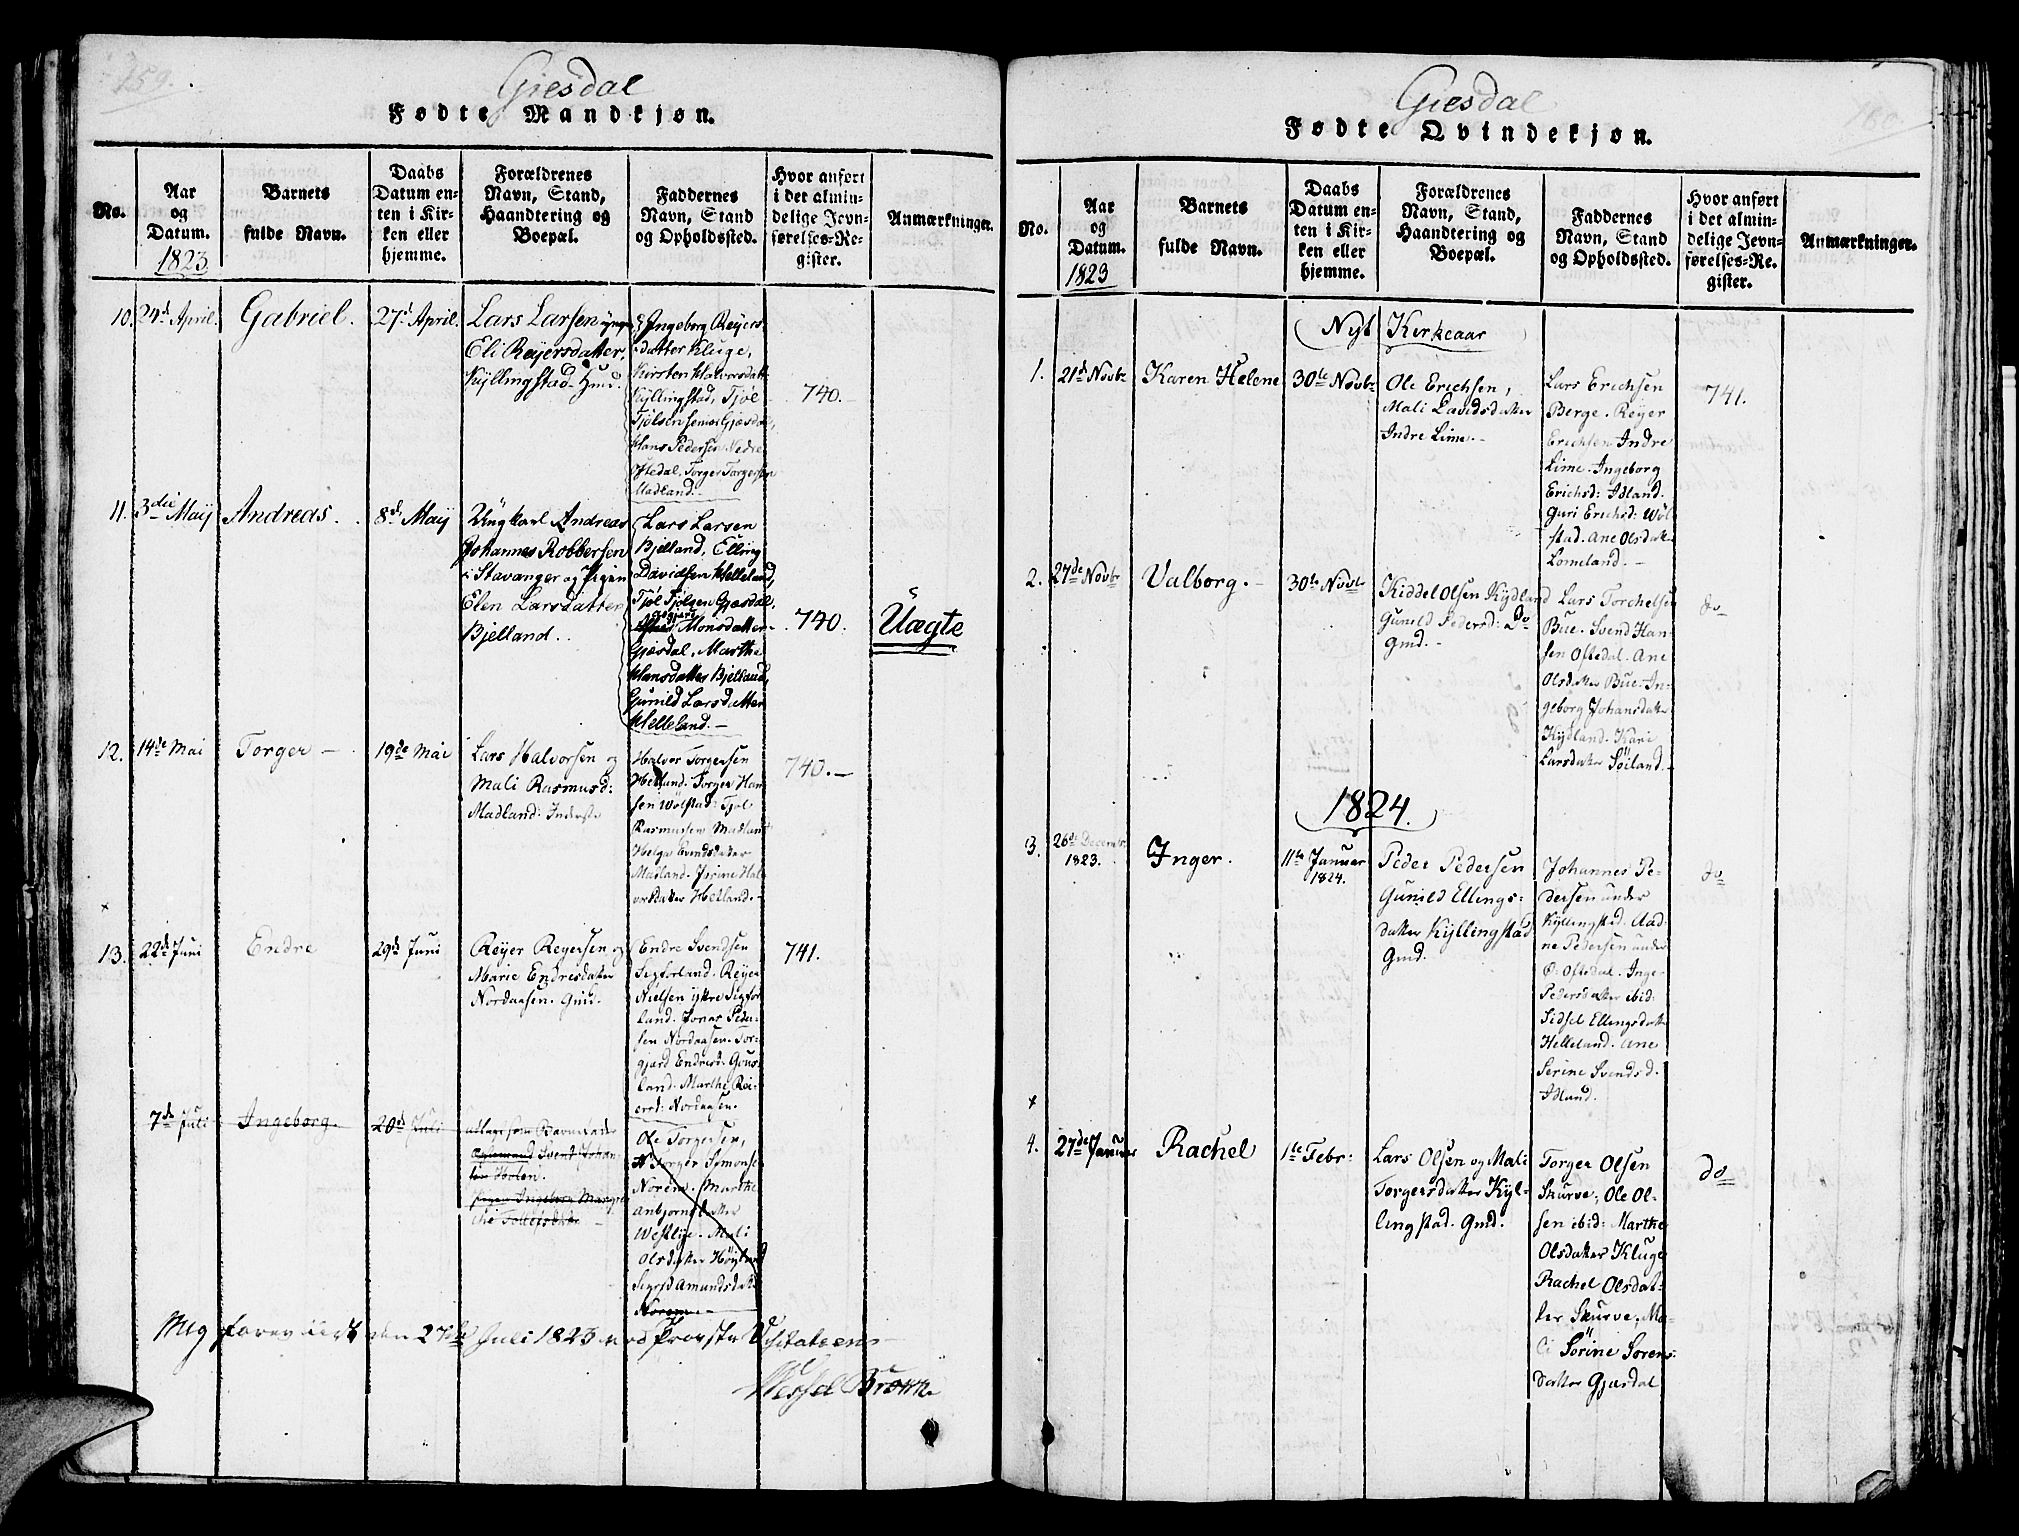 159.
Giesdal
Fødte Mandkjøn.
No.
Aar
og
Datum.
1823
Barnets
fulde Navn.
Daabs
Datum en-
ten i Kir-
ken eller
hjemme.
Forældrenes
Navn, Stand,
Haandtering og
Boepæl.
Faddernes
Navn, Stand
og Opholdssted.
Hvor anført
i det almin-
delige Jevn-
førelses-Re-
gister.
Anmærkninger.
10. 24d April.
Gabriel.
27d April.
Lars Larsen
Eli Reyersdatter,
Kyllingstad. Gmd.
Ingeborg Reyers
datter Kluge,
Kirsten Halvorsdatt
Kyllingstad, Tjøl
Tjølsen senior Gjæsdal,
Hans Pedersen Nedre
Oftedal. Torger Torgersen
Madland.
740.
11. 3die Maÿ
Andreas.
8d Maÿ
Ungkarl Andreas
Johannes Robbersen
i Stavanger og Pigen
Elen Larsdatter
Bjelland.
Lars Larsen
Bjelland, Elling
Davidsen Helleland,
Tjøl Tjølsen Gjæsdal,
Monsdatter
Gjæsdal, Marthe
Hansdatter Bjelland,
Gunild Larsdatter
Helleland.
740.
Uægte
12. 14de Mai
Torger
19de Mai
Lars Halvorsen og
Mali Rasmusd:
Madland: Inderste
Halvor Torgersen
Hetland. Torger Han
sen Wølstad: Tjøl
Rasmussen Madland
Helge Svendsdatter
Madland. Serine Hal
vorsdatter Hetland.
740.
13. 22de Juni
Endre
29de Juni
Reÿer Reyersen og
Marie Endresdatter
Nordaasen. Gmd.
Endre Svendsen
Sigforland. Reÿer
Nielsen ÿttre Sigfor
land. Jonas Peder-
sen Nordaasen. Tor-
gjerd Endresd. Gous-
land. Marthe Rei-
ersd: Nordaasen.
741.
7de Juli
Ingeborg.
20de Juli
udlagt som Barnefader
Svend Johan-
sen Holen.
pigen Ingeborg
Ole Torgersen,
Torger Simonsen
Norem. Marthe
Anbjørnsdatter
Westlÿe. Mali
Olsdatter Høÿland
Sigrid Amundsdatt
Norem
Mig forevist den 27de Juli 1823 ved Provstie Visitatsen
Wessel Brown
160.
Giesdal
Fødte Qvindekjøn.
No.
Aar
og
Datum.
1823
Barnets
fulde Navn.
Daabs
Datum en-
ten i Kir-
ken eller
hjemme.
Forældrenes
Navn, Stand,
Haandtering og
Boepæl.
Faddernes
Navn, Stand
og Opholdssted.
Hvor anført
i det almin-
delige Jevn-
førelses-Re-
gister.
Anmærkninger.
(Nyt Kirkeaar
1. 21d Novbr
Karen Helene
30te Novbr
Ole Erichsen,
Mali Davidsdatter
Indre Lime.
Lars Erichsen
Berge. Reÿer
Erichsen Indre
Lime. Ingeborg
Erichsd: Idland.
Guri Erichsd: Wøl
stad. Ane Olsdatter
Lomeland.
741.
2. 27de Novbr
Valborg.
30te Novbr
Kiddel Olsen Kydland
Gunild Pedersd: Do
Gmd.
Lars Torchelsen
Bue. Svend Han-
sen Oftedal. Ane
Olsdatter Bue. In-
geborg Johansdatter
Kydland. Kari
Larsdatter Søiland.
do
1824.
3. 26de Decembr
1823.
Inger.
11te Januar
1824.
Peder Pedersen
Gunild Ellings-
datter Kÿllingstad
Gmd.
Johannes Pe-
dersen under
Kÿllingstad. Aad-
ne Pedersen under
Ø: Oftedal. Inge-
Pedersdatter ibid:
Sidsel Ellingsdatter
Helleland. Ane
Serine Svendsd.
Idland.
do
4. 27de Januar
Rachel
1te Febr:
Lars Olsen og Mali
Torgersdatter Kÿl-
lingstad. Gmd.
Torger Olsen
Skurve, Ole Ol-
sen ibid: Marthe
Olsdatter Kluge
Rachel Olsdat-
ter Skurve, Ma-
li Sørine Sørens-
datter Gjæsdal
do